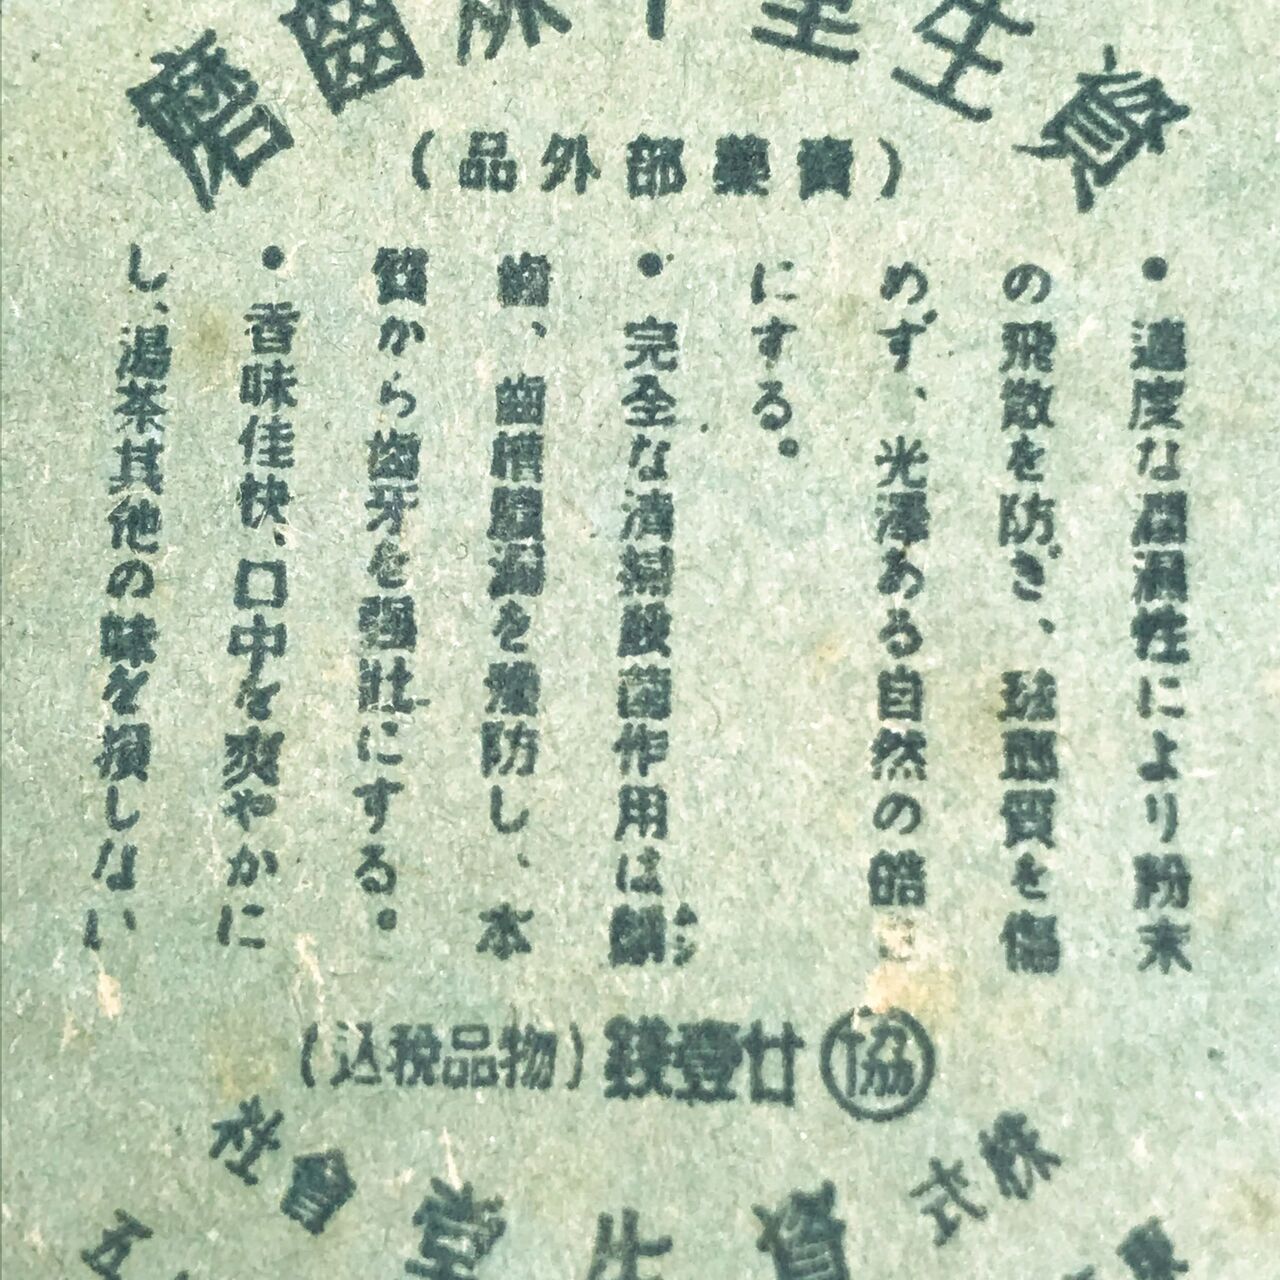 資生堂半煉齒磨
(賣藥部外品)
●適度な濕潤性により粉末
の飛散を防ぎ、琺瑯質を傷
めず、光澤ある自然の皓
にする。
●完全な清掃殺菌作用は齲ムシ
齒、齒槽膿漏を豫防し、本
質から齒牙を强壯にする。
●香味佳快、口中を爽やかに
し、湯茶其他の味を損しない
協 廿壹錢(物品稅込)
株式會社
資生堂
五